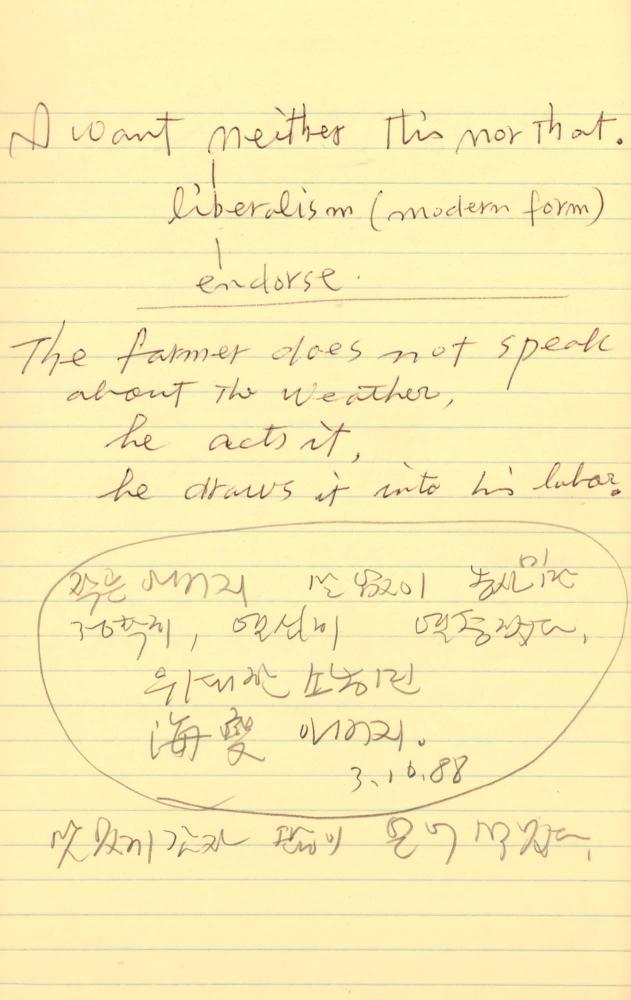 I want neither this nor that.
liberalism (modern form)
endorse.
The farmer does not speak
about the weather,
he acts it,
he draws it into his labor.
작은 아버지 말 없이 농사만
열심히
위대한 소농민
海 아버지.
3.10.88